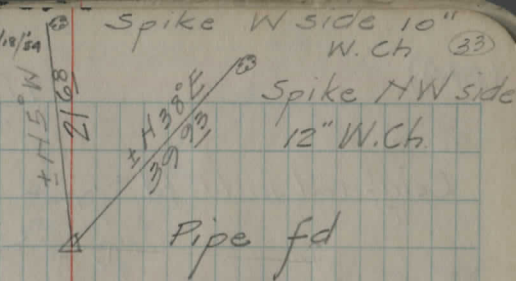 Spike W side 10"
W.Ch
33
Spike NW side
12" W.Ch.
±N5°W
2168
±N38°E
3993
Pipe fd